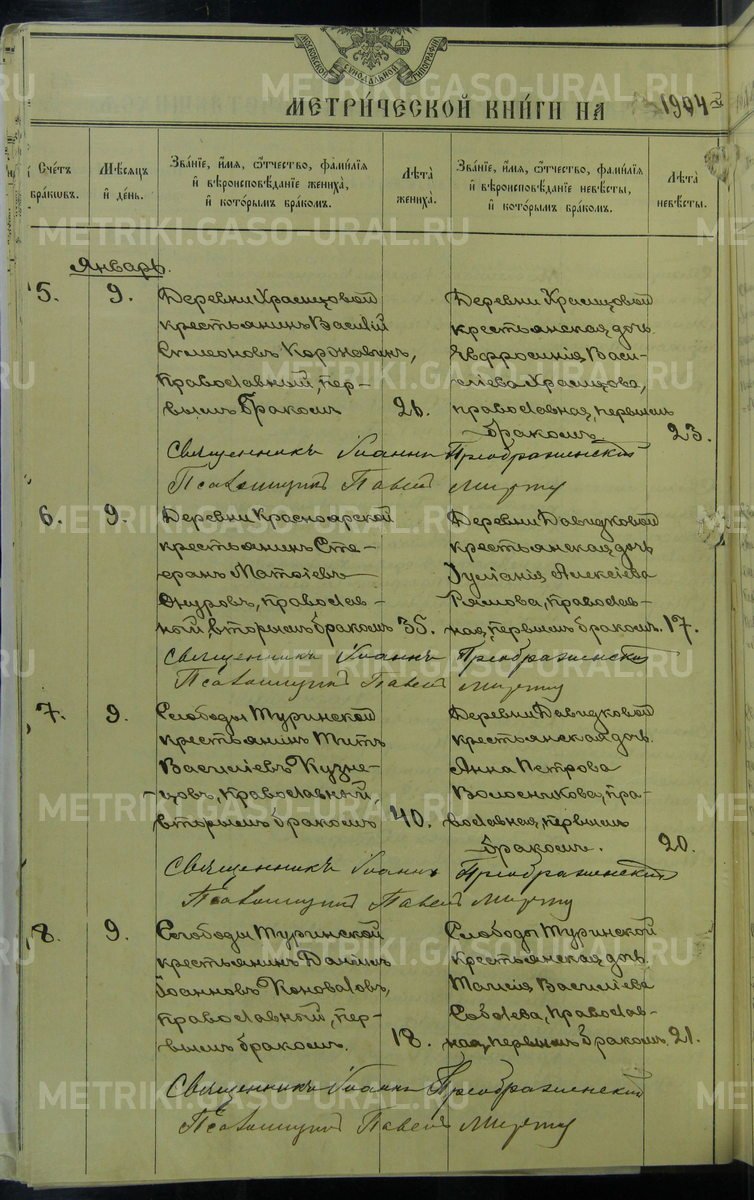 МОСКОВСКОЙ СѴНОДАЛЬНОЙ ТИПОГРАФІИ
МЕТРИ́ЧЕСКОЙ КНИ́ГИ НА 1904
Сче́тъ бра́кωвъ.
Мѣ́сѧцъ и҆ де́нь.
Зва́нїе, и҆́мѧ, ѻ҆́тчество, фами́лїѧ
и҆ вѣроисповѣ́данїе жениха̀,
и҆ кото́рымъ бра́комъ.
Лѣ́та жениха̀.
Зва́нїе, и҆́мѧ, ѻ҆́тчество, фами́лїѧ
и҆ вѣроисповѣ́данїе невѣ́сты,
и҆ кото́рымъ бра́комъ.
Лѣ́та невѣ́сты.
Январь.
5. 9.
Деревни Храмцовой
крестьянинъ Василій
Симеоновъ
православный, пер-
вымъ бракомъ 26.
Деревни Храмцовой
крестьянская дочь
Евфросинія Васи-
лiева Храмцова,
православная, первымъ
бракомъ 23.
Священникъ Іоаннъ Преображенский
Псаломщикъ Павел
6. 9.
Деревни Красноярской
крестьянинъ Сте-
фанъ Матѳіевъ
православ-
ный, вторымъ бракомъ 35.
Деревни Давыдковой
крестьянская дочь
Іуліанія Алексіева
православ-
ная, первымъ бракомъ. 17.
Священникъ Іоаннъ Преображенский
Псаломщикъ Павел
7. 9.
Слободы Туринской
крестьянинъ Титъ
Василіевъ Кузне-
цовъ, православный,
вторымъ бракомъ 40.
Деревни Давыдковой
крестьянская дочь
Анна Петрова
пра-
вославная, первымъ
бракомъ. 20.
Священникъ Іоаннъ Преображенский
Псаломщикъ Павел
8. 9.
Слободы Туринской
крестьянинъ Даніилъ
Іоанновъ Коноваловъ,
православный, пер-
вымъ бракомъ. 18.
Слободы Туринской
крестьянская дочь
Таисія Василіева
Соболева, православ-
ная, первымъ бракомъ. 21.
Священникъ Іоаннъ Преображенский
Псаломщикъ Павел
METRIKI.GASO-URAL.RU